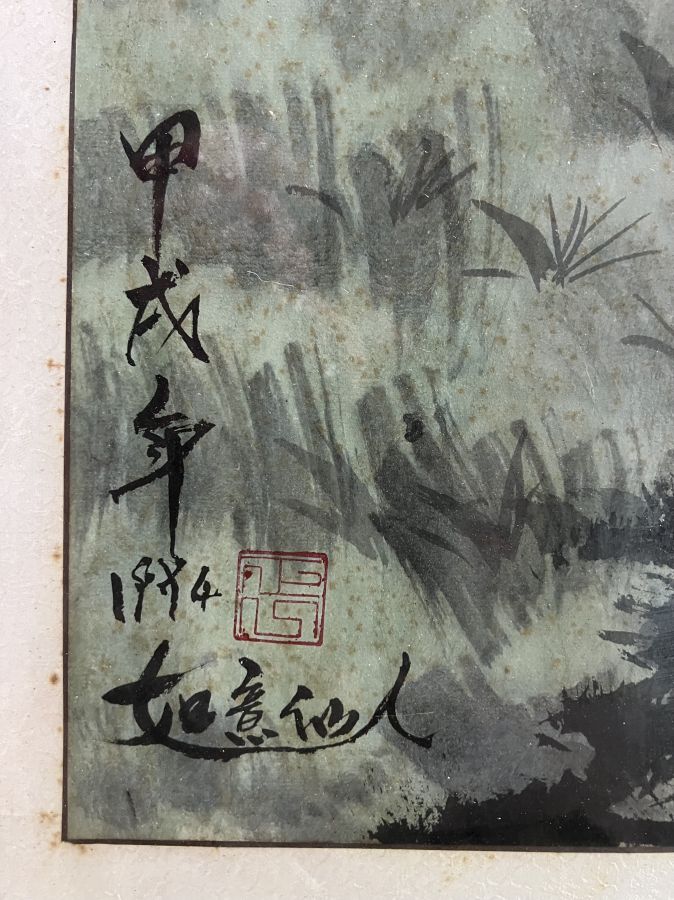 甲戌年
1994
如意仙人